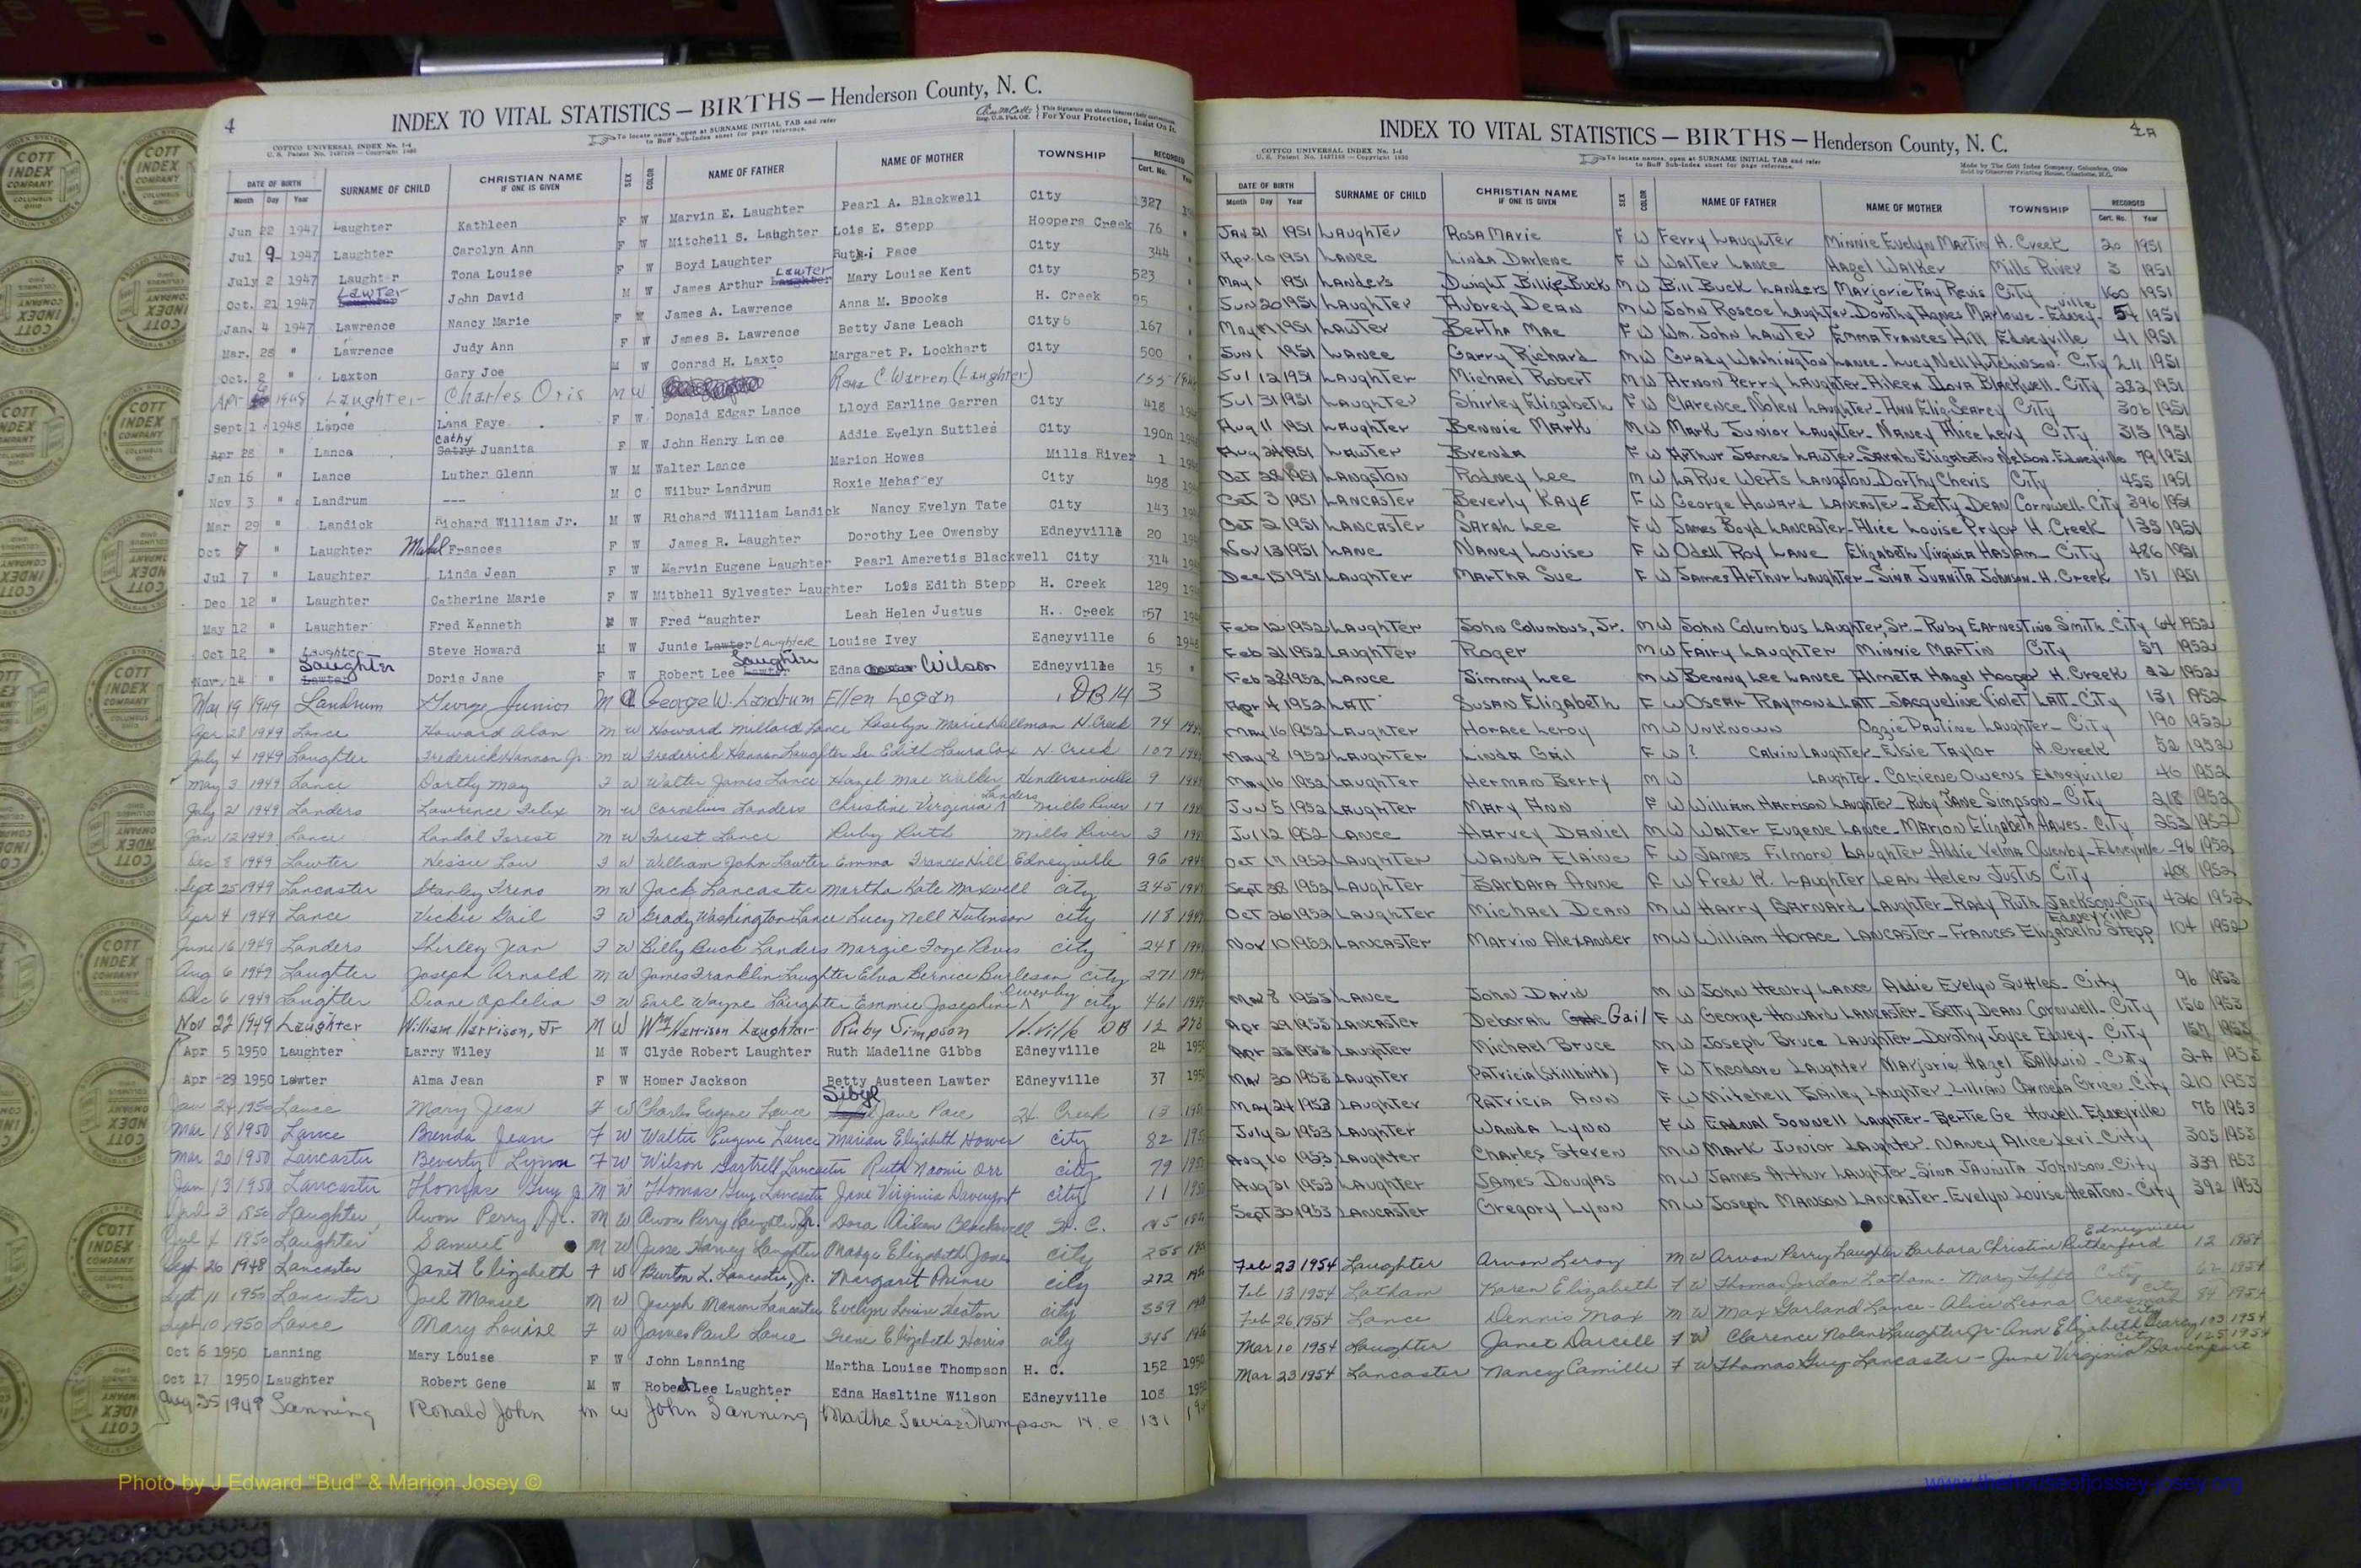 4
INDEX TO VITAL STATISTICS — BIRTHS — Henderson County, N. C.
COTTCO UNIVERSAL INDEX No. 1-4
U. S. Patent No. 1457168 — Copyright 1930
To locate names, open at SURNAME INITIAL TAB and refer
to Buff Sub-Index sheet for page reference.
This Signature on sheets insures their correctness,
For Your Protection, Insist On It.
DATE OF BIRTH SURNAME OF CHILD CHRISTIAN NAME SEX COLOR NAME OF FATHER NAME OF MOTHER TOWNSHIP RECORDED
Month Day Year IF ONE IS GIVEN Cert. No. Year
Jun 22 1947 Laughter Kathleen F W Marvin E. Laughter Pearl A. Blackwell City 327
Jul 9 1947 Laughter Carolyn Ann F W Mitchell S. Laughter Lois E. Stepp Hoopers Creek 76 "
July 2 1947 Laughter Tona Louise F W Boyd Laughter Pace City 344 "
Oct. 21 1947 Lawter John David M W James Arthur Lawter Mary Louise Kent City 523 "
Jan. 4 1947 Lawrence Nancy Marie F W James A. Lawrence Anna M. Brooks H. Creek 95 "
Mar. 28 " Lawrence Judy Ann F W James B. Lawrence Betty Jane Leach City 167 "
Oct. 2 " Laxton Gary Joe M W Conrad H. Laxto Margaret P. Lockhart City 500 "
Apr 1948 Laughter Charles Oris M W C Warren (Laughter) 155
Sept 1 1948 Lance Lana Faye F W Donald Edgar Lance Lloyd Earline Garren City 418
Apr 28 " Lance Cathy Juanita F W John Henry Lance Addie Evelyn Suttles City 190n
Jan 16 " Lance Luther Glenn W M Walter Lance Marion Howes Mills River 1
Nov 3 " Landrum --- M C Wilbur Landrum Roxie Mehaffey City 498
Mar 29 " Landick Richard William Jr. M W Richard William Landick Nancy Evelyn Tate City 143
Oct 7 " Laughter Frances F W James R. Laughter Dorothy Lee Owensby Edneyville 20
Jul 7 " Laughter Linda Jean F W Marvin Eugene Laughter Pearl Ameretis Blackwell City 314
Dec 12 " Laughter Catherine Marie F W Mitbhell Sylvester Laughter Lois Edith Stepp H. Creek 129
May 12 " Laughter Fred Kenneth M W Fred Laughter Leah Helen Justus H. Creek 57
Oct 12 " Laughter Steve Howard M W Junie Lawter Laughter Louise Ivey Edneyville 6 1948
Nov. 14 " Laughter Lawter Doris Jane F W Robert Lee Laughter Lawter Edna Wilson Edneyville 15 "
Mar 19 1949 Landrum George Junior M C George W. Landrum Ellen Logan DB 14 3
Apr 28 1949 Lance Howard Alan M W Howard Millard Lance Roselyn Marie Hallman H. Creek 74
July 4 1949 Laughter Frederick Hannon Jr. M W Frederick Hannon Laughter Sr. Edith Laura Cox H. Creek 107
May 3 1949 Lance Dorthy May F W Walter James Lance Hazel Mae Walker Hendersonville 9
July 21 1949 Landers Lawrence Felix M W Cornelius Landers Christine Virginia Landers Mills River 17
Jan 12 1949 Lance Randal Forest M W Forest Lance Ruby Ruth Mills River 3
Dec 8 1949 Lawter Nessie Lou F W William John Lawter Emma Frances Hill Edneyville 96
Sept 25 1949 Lancaster Stanley Treno M W Jack Lancaster Martha Kate Maxwell city 345
Apr 4 1949 Lance Vickie Gail F W Grady Washington Lance Lucy Nell Hutinson city 118
June 16 1949 Landers Shirley Jean F W Billy Buck Landers Margie Foye Revis city 248
Aug 6 1949 Laughter Joseph Arnold M W James Franklin Laughter Elva Bernice Burleson city 271
Dec 6 1949 Laughter Diane Ophelia F W Earl Wayne Laughter Emmie Josephine Owenby city 461
Nov 22 1949 Laughter William Harrison, Jr M W Wm Harrison Laughter Ruby Simpson H.ville DB 12 278
Apr 5 1950 Laughter Larry Wiley M W Clyde Robert Laughter Ruth Madeline Gibbs Edneyville 24 1950
Apr 29 1950 Lawter Alma Jean F W Homer Jackson Betty Austeen Lawter Edneyville 37 1950
Jan 24 1950 Lance Mary Jean F W Charles Eugene Lance Sibyl Jane Pace H. Creek 13
Mar 18 1950 Lance Brenda Jean F W Walter Eugene Lance Marian Elizabeth Hower city 82
Mar 20 1950 Lancaster Beverly Lynn F W Wilson Gartrell Lancaster Ruth Naomi Orr city 79
Jan 13 1950 Lancaster Thomas Guy Jr. M W Thomas Guy Lancaster Jane Virginia Davenport city 11
3 1950 Laughter Avon Perry, Jr. M W Avon Perry Laughter Sr. Dora Aileen Blackwell H. C.
4 1950 Laughter Samuel M W Jesse Harvey Laughter Madge Elizabeth Jones city 255
Sept 26 1948 Lancaster Janet Elizabeth F W Burton L. Lancaster, Jr. Margaret Prince city 272
Sept 11 1950 Lancaster Joel Mansel M W Joseph Manson Lancaster Evelyn Louise Heaton city 359
Sept 10 1950 Lance Mary Louise F W James Paul Lance Irene Elizabeth Harris city 345
Oct 6 1950 Lanning Mary Louise F W John Lanning Martha Louise Thompson H. C. 152 1950
Oct 17 1950 Laughter Robert Gene M W Robert Lee Laughter Edna Hasltine Wilson Edneyville 108 1950
Aug 25 1949 Lanning Ronald John M W John Lanning Martha Louise Thompson H. C 131
4A
INDEX TO VITAL STATISTICS — BIRTHS — Henderson County, N. C.
COTTCO UNIVERSAL INDEX No. 1-4
U. S. Patent No. 1457168 — Copyright 1930
To locate names, open at SURNAME INITIAL TAB and refer
to Buff Sub-Index sheet for page reference.
Made by The Cott Index Company, Columbus, Ohio
Sold by Observer Printing House, Charlotte, N.C.
DATE OF BIRTH SURNAME OF CHILD CHRISTIAN NAME SEX COLOR NAME OF FATHER NAME OF MOTHER TOWNSHIP RECORDED
Month Day Year IF ONE IS GIVEN Cert. No. Year
Jan 21 1951 Laughter Rosa Marie F W Ferry Laughter Minnie Evelyn Martin H. Creek 20 1951
Apr. 10 1951 Lance Linda Darlene F W Walter Lance Hazel Walker Mills River 3 1951
May 1 1951 Landers Dwight Billie Buck M W Bill Buck Landers Marjorie Fay Revis City 160 1951
Jun 20 1951 Laughter Aubrey Dean M W John Roscoe Laughter - Dorothy Agnes Marlowe - Edneyville 54 1951
May 1951 Lawter Bertha Mae F W Wm. John Lawter Emma Frances Hill Edneyville 41 1951
Jun 1 1951 Lance Garry Richard M W Grady Washington Lance - Lucy Nell Hutchinson. City 211 1951
Jul 12 1951 Laughter Michael Robert M W Arnon Perry Laughter - Aileen Dova Blackwell - City 282 1951
Jul 31 1951 Laughter Shirley Elizabeth F W Clarence Nolen Laughter - Ann Eliz. Searcy City 306 1951
Aug 11 1951 Laughter Bennie Mark M W Mark Junior Laughter - Nancy Alice Levy City 313 1951
Aug 24 1951 Lawter Brenda F W Arthur James Lawter - Sarah Elizabeth Nelson. Edneyville 79 1951
Oct 28 1951 Langston Rodney Lee M W LaRue Werts Langston - Dorthy Chevis City 455 1951
Oct 3 1951 Lancaster Beverly Kaye F W George Howard Lancaster - Betty Dean Cornwell - City 396 1951
Oct 2 1951 Lancaster Sarah Lee F W James Boyd Lancaster - Alice Louise Pryor H. Creek 135 1951
Nov 13 1951 Lane Nancy Louise F W Odell Roy Lane Elizabeth Virginia Haslam - City 486 1951
Dec 15 1951 Laughter Martha Sue F W James Arthur Laughter - Sina Juanita Johnson - H. Creek 151 1951
Feb 12 1952 Laughter John Columbus, Jr. M W John Columbus Laughter, Sr. - Ruby Earnestine Smith - City 64 1952
Feb 21 1952 Laughter Roger M W Fairy Laughter Minnie Martin City 57 1952
Feb 28 1952 Lance Jimmy Lee M W Benny Lee Lance Almeta Hazel Hooper H. Creek 22 1952
Apr 4 1952 Latt Susan Elizabeth F W Oscar Raymond Latt - Jacqueline Violet Latt - City 131 1952
May 16 1952 Laughter Horace Leroy M W Unknown Ozzie Pauline Laughter - City 190 1952
May 8 1952 Laughter Linda Gail F W ? Calvin Laughter - Elsie Taylor H. Creek 52 1952
May 16 1952 Laughter Herman Berry M W Laughter - Coriene Owens Edneyville 46 1952
Jun 5 1952 Laughter Mary Ann F W William Harrison Laughter - Ruby Jane Simpson - City 218 1952
Jul 2 1952 Lance Harvey Daniel M W Walter Eugene Lance - Marion Elizabeth Hawes - City. 253 1952
Oct 17 1952 Laughter Wanda Elaine F W James Filmore Laughter - Addie Velma Owenby - Edneyville - 96 1952
Sept 28 1952 Laughter Barbara Anne F W Fred K. Laughter Leah Helen Justus City 408 1952
Oct 26 1952 Laughter Michael Dean M W Harry Barnard Laughter - Rady Ruth Jackson - City 426 1952
Nov 10 1952 Lancaster Marvin Alexander M W William Horace Lancaster - Frances Elizabeth Stepp Edneyville 104 1952
Mar 8 1953 Lance John David M W John Henry Lance Addie Evelyn Suttles - City 96 1953
Apr 29 1953 Lancaster Deborah Gail F W George Howard Lancaster - Betty Dean Cornwell - City 156 1953
Apr 23 1953 Laughter Michael Bruce M W Joseph Bruce Laughter - Dorothy Joyce Edney - City 157 1953
Mar 30 1953 Laughter Patricia (Stillbirth) F W Theodore Laughter Marjorie Hazel Baldwin - City 2-A 1953
May 24 1953 Laughter Patricia Ann F W Mitchell Bailey Laughter - Lillian Carmela Grice - City 210 1953
July 2 1953 Laughter Wanda Lynn F W Eadnal Sonnell Laughter - Bertie Ge Howell. Edneyville 75 1953
Aug 16 1953 Laughter Charles Steven M W Mark Junior Laughter - Nancy Alice Levi - City 305 1953
Aug 31 1953 Laughter James Douglas M W James Arthur Laughter - Sina Jaunita Johnson - City 339 1953
Sept 30 1953 Lancaster Gregory Lynn M W Joseph Manson Lancaster - Evelyn Louise Heaton - City 392 1953
Feb 23 1954 Laughter Arvon Leroy M W Arvon Perry Laughter Barbara Christine Rutherford Edneyville 12 1954
Feb 13 1954 Latham Karen Elizabeth F W Thomas Jordan Latham - Mary Tefft City 62 1954
Feb 26 1954 Lance Dennis Max M W Max Garland Lance - Alice Leona Creasman City 84 1954
Mar 10 1954 Laughter Janet Darcell F W Clarence Nolan Laughter Jr - Ann Elizabeth Searcy City 103 1954
Mar 23 1954 Lancaster Nancy Camille F W Thomas Guy Lancaster - June Virginia Davenport City 125 1954
Photo by J Edward “Bud” & Marion Josey ©
www.thehouseofjossey-josey.org